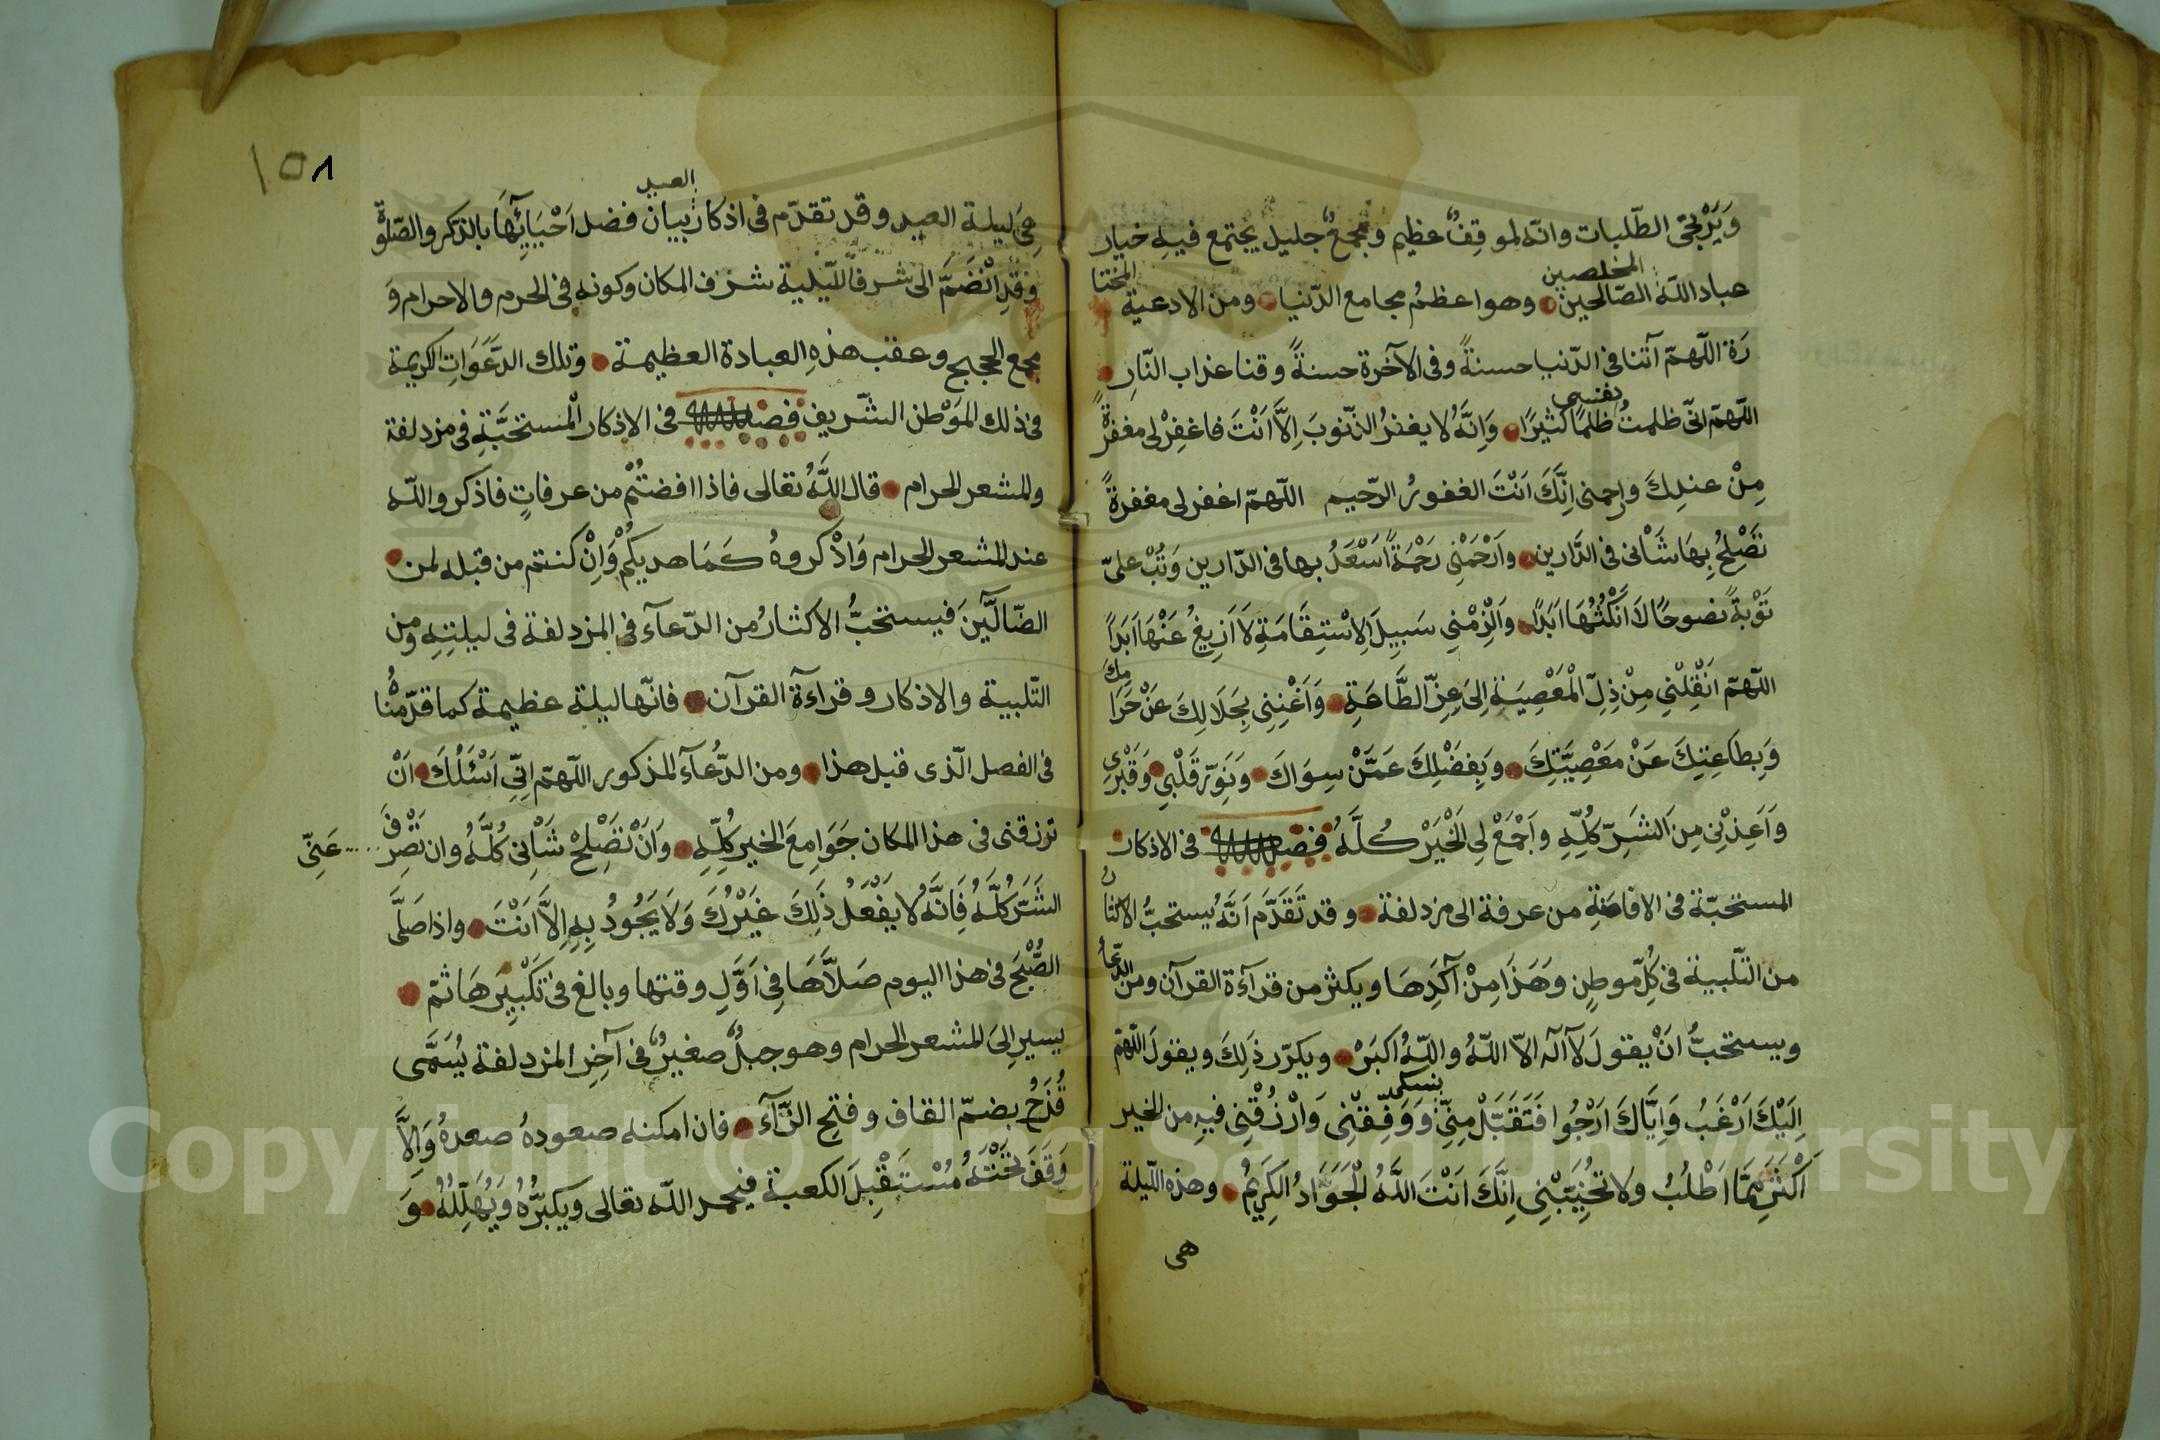 وَيَرْتجَى الطّلبات وانّه لموقفٌ عظيم ومجمعٌ جليل يجتمع فيه خيار
عباد الله الصّالحين المخلصين وهو اعظمُ مجامع الدّنيا ومن الادعية المختا
رَة اللّهمّ آتنا فى الدّنيا حسنةً وفى الآخرة حسنةً وقنا عذاب النّارِ
اللّهمّ انّى ظلمتُ نفسى ظلمًا كثيرًا وَاِنَّهُ لا يغفرُ الذّنوبَ اِلاَّ اَنْتَ فاغفِرْلى مغفرةً
مِنْ عندِكَ وارحمنى اِنَّكَ اَنْتَ الغفورُ الرّحيم اللّهمّ اغفرلى مغفرةً
تُصْلِحُ بِهَا شَاْنى فى الدَّارين وارْحَمْنِى رَحْمَةً اَسْعَدُ بها فى الدّارين وَتُبْ علىّ
تَوْبةً نصوحًا لاَ اَنْكُثُهَا اَبَدًا وَاَلْزِمْنِي سَبِيلَ اِلاْسْتِقَامَةِ لاَ اَزِيغُ عَنْهَا اَبَدًا
اللّهمّ انْقُلْنِي مِنْ ذِلِّ الْمَعْصِيَةِ اِلىَ عِزِّ الطَّاعَةِ وَاَغْنِنِى بِحَلاَلِكَ عَنْ حَرَامِكَ
وَبِطَاعَتِكَ عَنْ مَعْصِيَّتِكَ وَبِفَضْلِكَ عَمَّنْ سِوَاكَ وَنَوِّرْ قَلْبِي وَقَبْرِى
وَاَعِذْنِى مِنَ الشَّرِّ كُلِّهِ وَاَجْمَعْ لِى الْخَيْرَ كُلَّهُ فصل فى الاذكار
المستحبّة فى الافاضةِ من عرفة الى مزدلفة وقد تَقَدَّم اَنَّهُ يُستحبُّ الاكثار
من التّلبية فى كلِّ موطنٍ وَهَذَا مِنْ آكَدِهَا ويكثر من قرآءة القرآن ومن الدّعآء
ويستحبُّ اَنْ يقولَ لاَ آله الاّ اللّهُ واللّهُ اكبَرْ ويكرّر ذلِكَ ويقولَ اللّهمّ
اِلَيْكَ اَرْغَبُ وَاِيَّاكَ اَرْجُوا فَتَقَبَّلْ نسكى مِنِّى وَوَفِّقْنِى وَارْزُقْنِى فيهِ من الخير
اَكْثَرَ مِمَّا اَطْلُبُ ولا تُخَيِّبْنِى اِنَّكَ اَنْتَ اللَّهُ الْجَوَّادُ الكَرِيْمُ وهذه اللّيلة
هى
١٥٨
هِىَ ليلة العيد وقد تقدّم فى اذكار العيد بيان فضل اَحْيَائِهَا بالذّكر والصّلوة
وَقَدِ انْضَمَّ الى شرف اللّيلية شرف المكان وكونه فى الحرم والاحرام وَ
مجمع الحجيج وعقب هذهِ العبادة العظيمة وتلك الدَّعَوَاتِ الكريمة
فى ذلك المَوْطن الشّريف فصل فى الاذكار المستحبَّةِ فى مزدلفة
والمشعر الحرام قال اللّهُ تعالى فاذا افضتُمْ من عرفاتٍ فاذكروا اللّه
عند المشعر الحرام وَاذْكروهُ كَمَا هديكُمْ وَاِنْ كنتم من قبله لمن
الضّالّينَ فيستحبُّ الاكثارُ من الدّعآء فى المزدلفة فى ليلتِهِ ومن
التّلبية والاذكار وقراءة القرآن فانّها ليلة عظيمة كما قدّمْنا
فى الفصل الّذى قبل هذا ومن الدُّعآء المذكور اللّهمّ اِنِّى اَسْئَلُكَ اَنْ
ترزقنى فى هذا المكان جَوَامِعَ الخيرِ كُلِّهِ وَاَنْ تُصْلِحْ شَاْنِى كُلَّهُ وان تَصْرِفَ عَنِّى
الشَّرَّ كُلَّهُ فَاِنَّهُ لاَ يَفْعَلُ ذَلِكَ غَيْرُكَ وَلاَ يَجُودُ بِهِ اِلاَّ اَنْتَ واذا صَلَّى
الصُّبْحَ فى هذا اليوم صَلاَّهَا فِى اَوَّلِ وقتها وبالغ فى تَكْبِيرِهَا ثمّ
يسير اِلىَ المشعر الحرام وهو جبلٌ صغيرٌ فى آخِرِ المزدلفة يُسَمَّى
قُزَحُ بضمّ القاف وفتحِ الزّآءِ فان امكنه صعودهُ صعدهُ وَاِلاَّ
وَقَفَ تَحْتَهُ مُسْتَقْبِلَ الكعبة فيحمد اللّه تعالى ويكبّرُهُ وَيُهَلِّلُهُ وَ